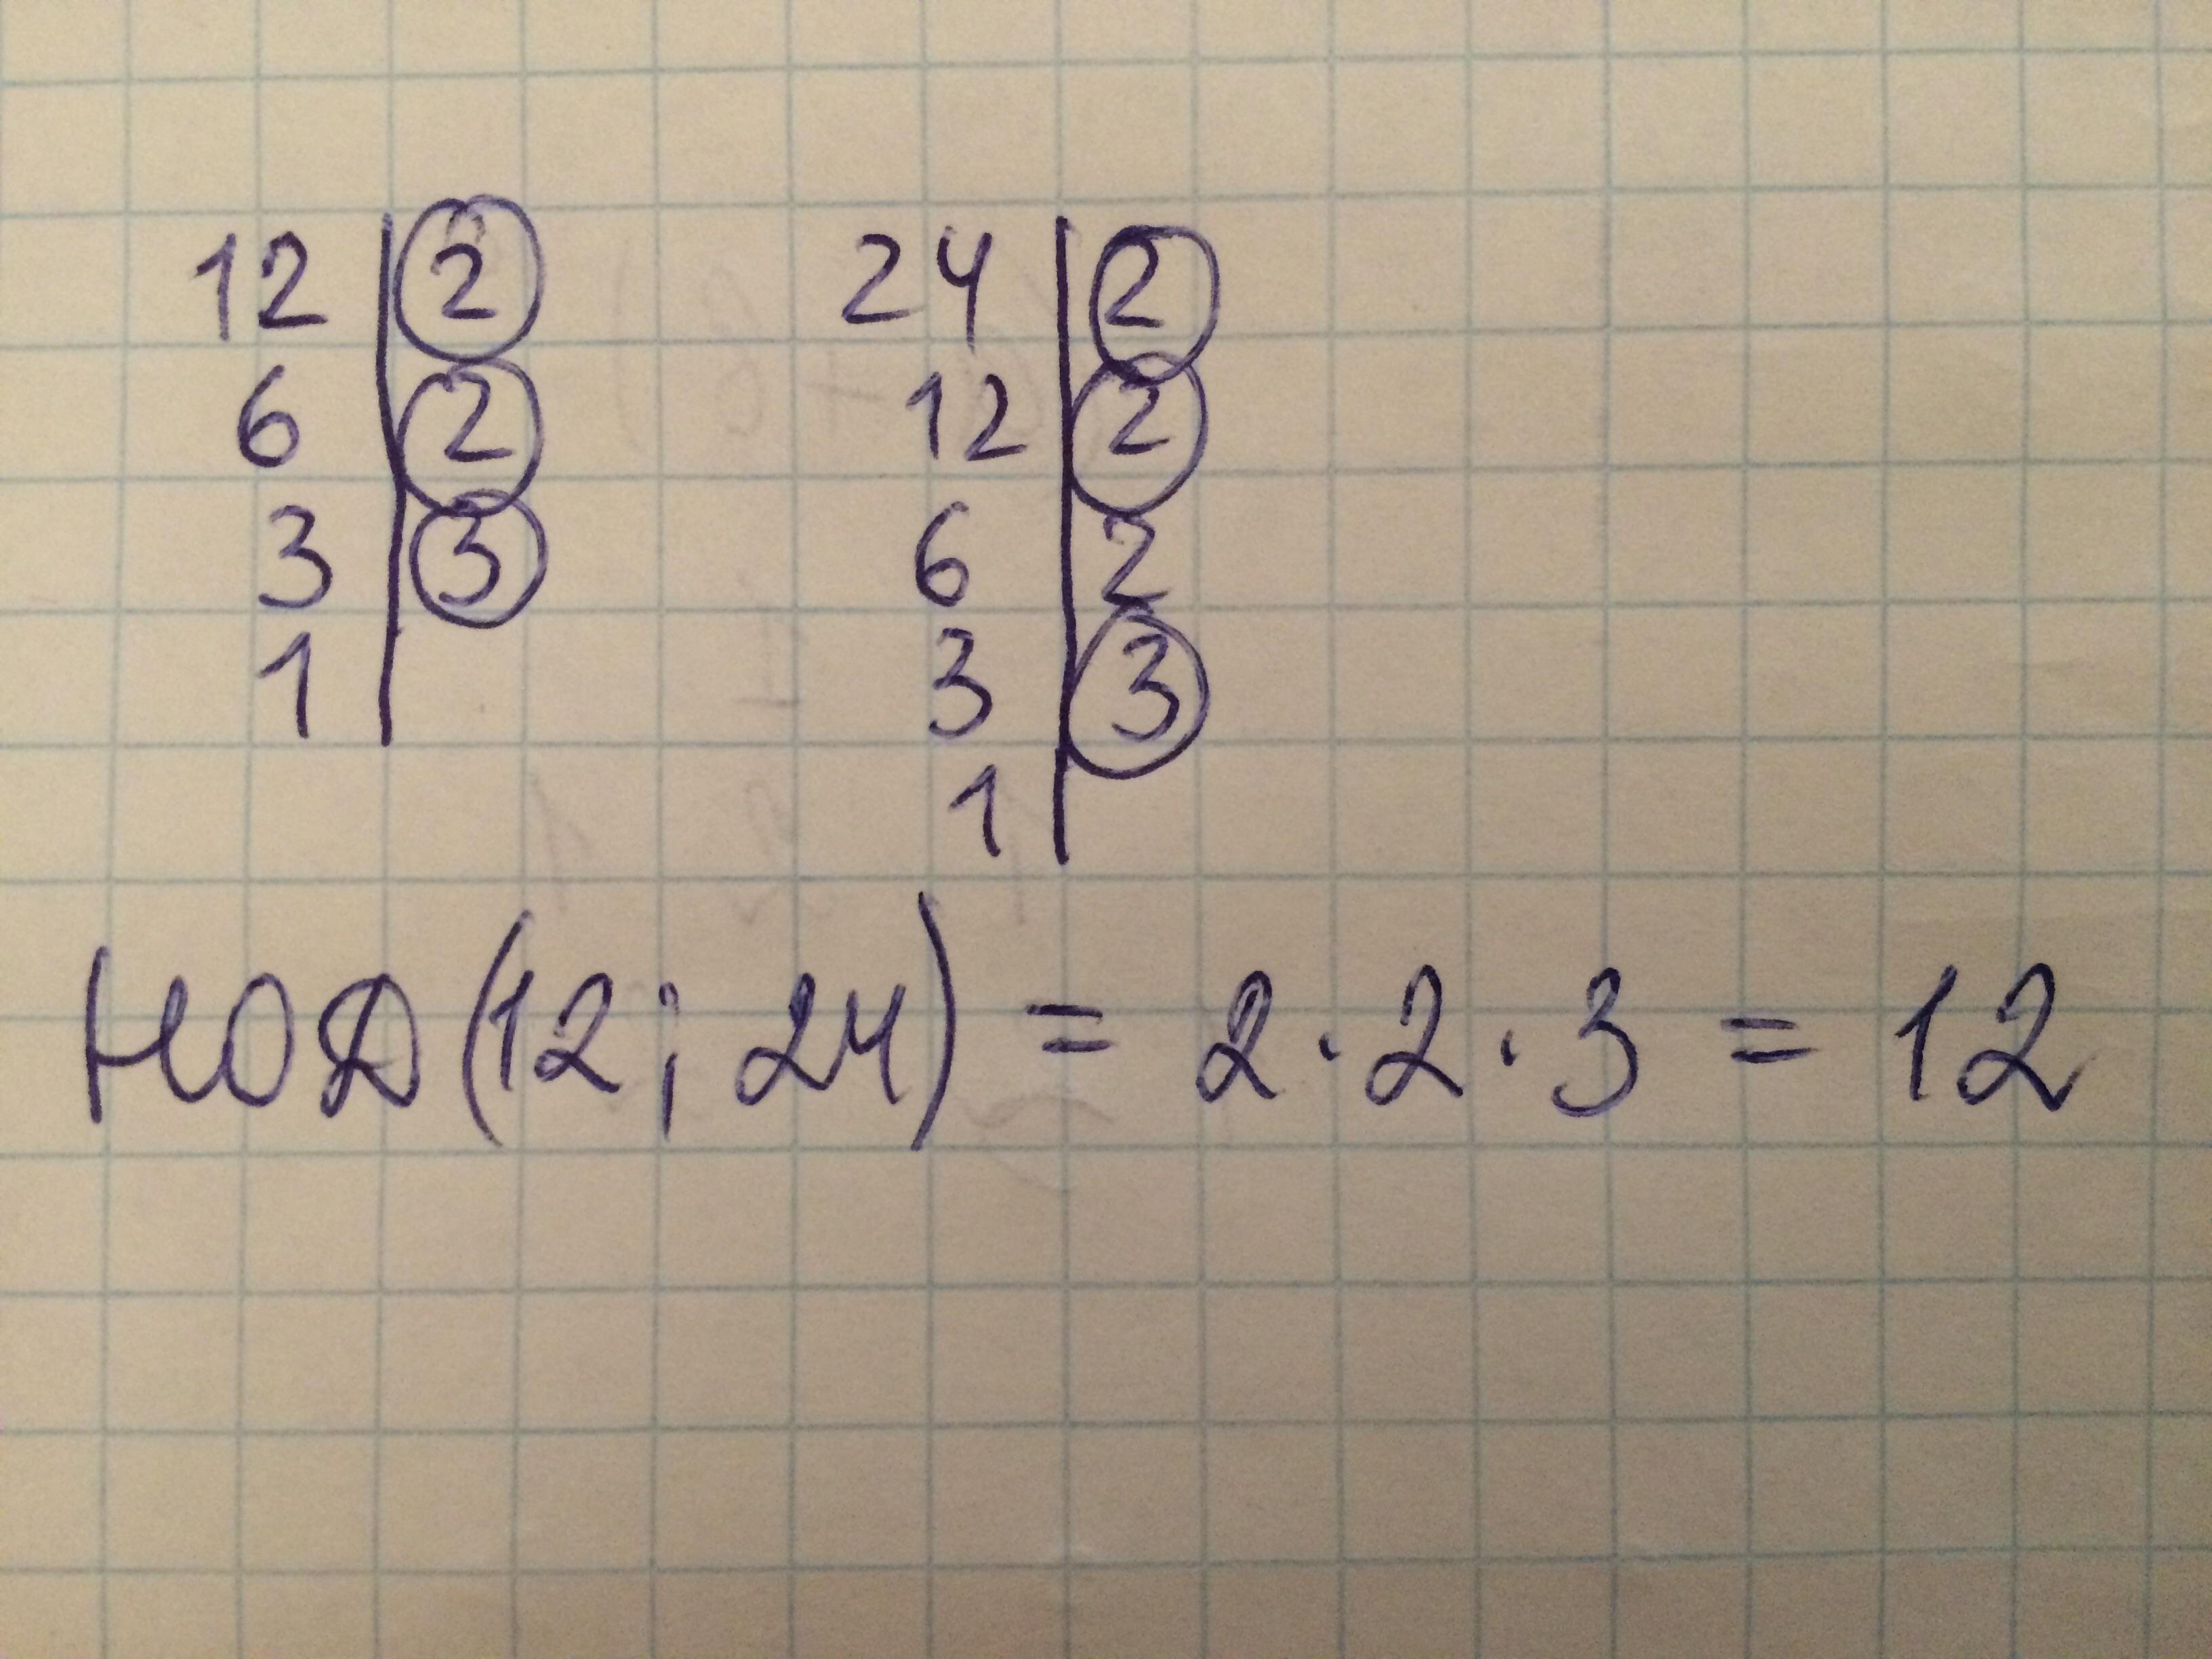 12 | 2 24 | 2
6 | 2 12 | 2
3 | 3 6 | 2
1 | 3 | 3
1 |
НОД(12; 24) = 2 · 2 · 3 = 12